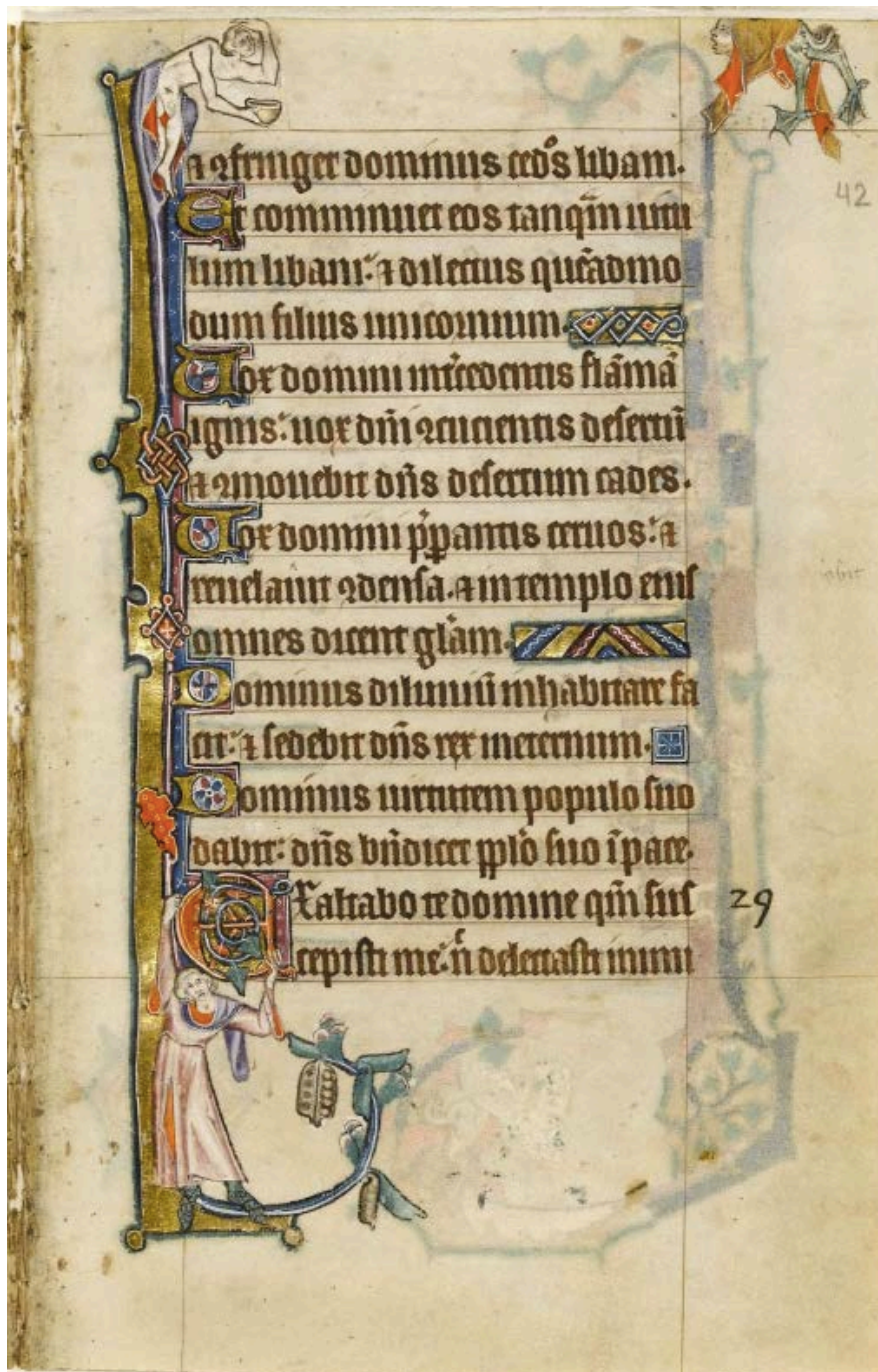 ⁊ ꝯfringet dominus cedͦs libani.
Et comminuet eos tanqͫm uitu
lum libani: ⁊ dilectus quēadmo
dum filius unicornium.
Uox domini int̾cedentis flāmā
ignis: uox dn̄i ꝯcucientis desertū
⁊ ꝯmouebit dn̄s desertum cades.
Uox domini p̄ꝑantis ceruos: ⁊
reuelauit ꝯdensa. ⁊ in templo eius
omnes dicent gl̄am.
Dominus diluuiū inhabitare fa
cit: ⁊ sedebit dn̄s rex ineternum.
Dominus uirtutem populo suo
dabit: dn̄s bn̄dicet ppl̄o suo ī pace.
Exaltabo te domine qm̄ sus
cepisti me: n̄ delectasti inimi
42
29